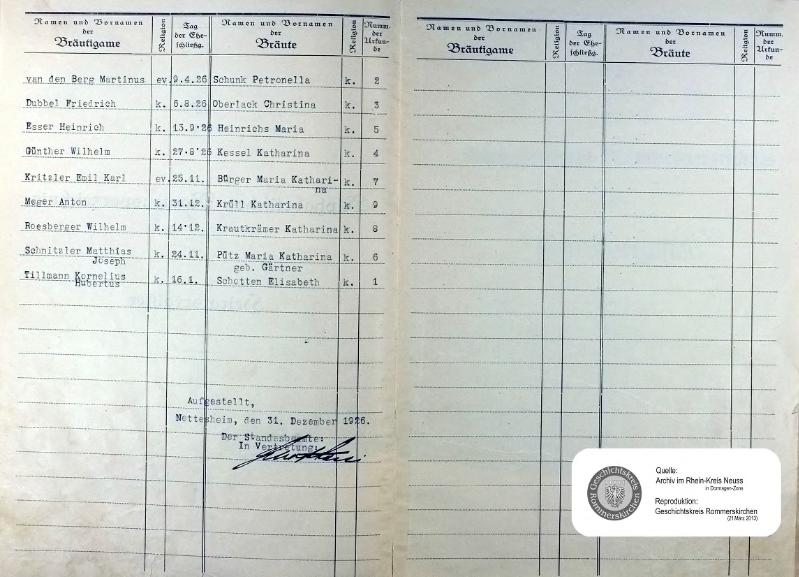 Namen und Vornamen der Bräutigame Religion Tag der Ehe-schließg. Namen und Vornamen der Bräute Religion Numm. der Urkun-de
van den Berg Martinus ev. 9.4.26 Schunk Petronella k. 2
Dubbel Friedrich k. 6.8.26 Oberlack Christina k. 3
Esser Heinrich k. 13.9.26 Heinrichs Maria k. 5
Günther Wilhelm k. 27.8.26 Kessel Katharina k. 4
Kritzler Emil Karl ev. 25.11. Bürger Maria Kathari-
na k. 7
Meger Anton k. 31.12. Krüll Katharina k. 9
Roesberger Wilhelm k. 14.12. Krautkrämer Katharina k. 8
Schnitzler Matthias k. 24.11. Pütz Maria Katharina k. 6
Joseph geb. Gärtner
Tillmann Kornelius k. 16.1. Schotten Elisabeth k. 1
Hubertus
Aufgestellt,
Nettesheim, den 31. Dezember 1926.
Der Standesbeamte:
In Vertretung:
Namen und Vornamen der Bräutigame Religion Tag der Ehe-schließg. Namen und Vornamen der Bräute Religion Numm. der Urkun-de
Geschichtskreis Rommerskirchen
Quelle:
Archiv im Rhein-Kreis Neuss
in Dormagen-Zons
Reproduktion:
Geschichtskreis Rommerskirchen
(21.März 2013)